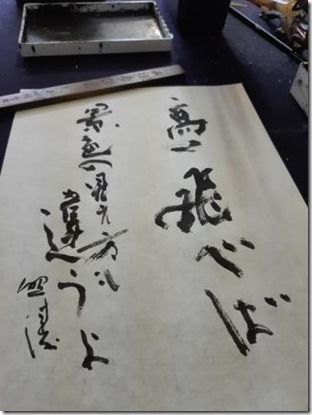 高く飛べば
景色の見え方
違うよ